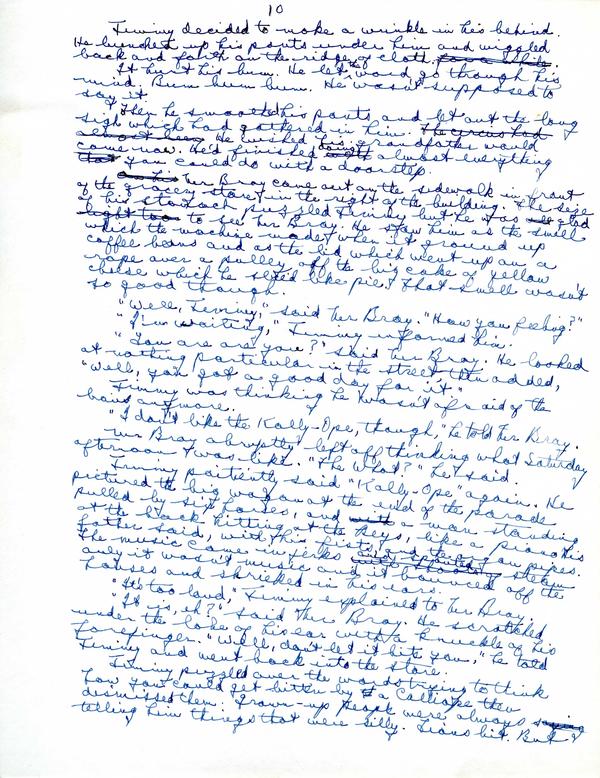 10
Timmy decided to make a wrinkle in his behind.
He bunched up his pants under him and wiggled
back and forth on the ridge of cloth,
It hurt his bum. He let the word go through his
mind. Bum bum bum. He wasn't supposed to
say it.
Then he smoothed his pants and let out the long
sigh which had gathered in him. The circus had
He wished his grandfather would
come now. He'd finished doing almost everything
that you could do with a doorstep.
Mr Bray came out on the sidewalk in front
of the grocery store in the right of the building. The size
of his stomach puzzled Timmy but he was glad
to see Mr Bray. He saw him as the smell
which the machine made when it ground up
coffee beans and as the lid which went up on a
rope over a pulley off the big cake of yellow
cheese which he sliced like pie. That smell wasn't
so good though.
"Well, Timmy," said Mr Bray. "How you feeling?"
"I'm waiting," Timmy informed him.
"You are are you?" said Mr Bray. He looked
at nothing particular in the street then added,
"Well, you got a good day for it."
Timmy was thinking he wasn't afraid of the
anymore.
"I don't like the Kally-Ope, though," he told Mr Bray.
Mr Bray abruptly left off thinking what Saturday
afternoon was like. "The what?" he said.
Timmy patiently said "Kally-Ope" again. He
pictured the big wagon at the end of the parade
pulled by six horses, and a man standing
at the back hitting at the keys, like a piano his
father said, with his fists, and the steam pipes.
The music came in jerks of steam
only it wasn't music and it bounced off the
houses and shrieked in his ears.
"It's too loud," Timmy explained to Mr Bray.
"It is, eh?" said Mr Bray. He scratched
under the lobe of his ear with a knuckle of his
forefinger. "Well, don't let it bite you," he told
Timmy and went back into the store.
Timmy puzzled over the words trying to think
how you could get bitten by a Calliope then
dismissed them. Grown-up people were always
telling him things that were silly. Lions bit. But